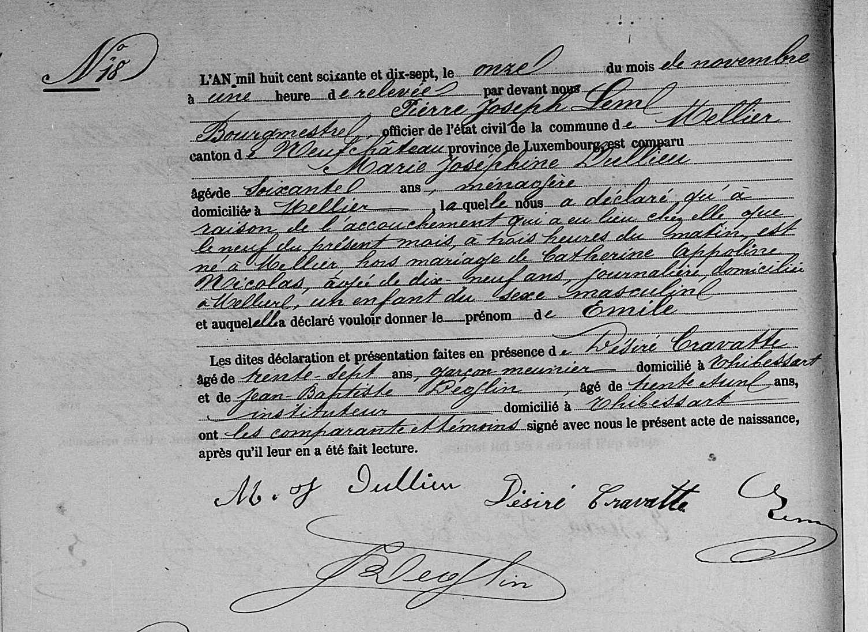 No 18
L'AN mil huit cent soixante et dix-sept, le onze du mois de novembre
à une heure de relevée par devant nous
Pierre Joseph Lem
Bourgmestre, officier de l'état civil de la commune de Mellier
canton de Neufchâteau province de Luxembourg, est comparu
Marie Josephine Dullieu
âgé de soixante ans, ménagère
domiciliée à Mellier, laquelle nous a déclaré qu'à
raison de l'accouchement qui a eu lieu chez elle que
le neuf du présent mois, à trois heures du matin, est
né à Mellier, hors mariage de Catherine Appoline
Nicolas, agée de dix neuf ans, journalière domiciliée
à Mellier, un enfant du sexe masculin
et auquel elle a déclaré vouloir donner le prénom de Emile
Les dites déclaration et présentation faites en présence de Désiré Cravatte
âgé de trente-sept ans, garçon meunier domicilié à Thibessart
et de Jean-Baptiste Deoglin, âgé de trente un ans,
instituteur domicilié à Thibessart
ont les comparante et témoins signé avec nous le présent acte de naissance,
après qu'il leur en a été fait lecture.
M. J Dullieu Désiré Cravatte Lem
JBDeoglin